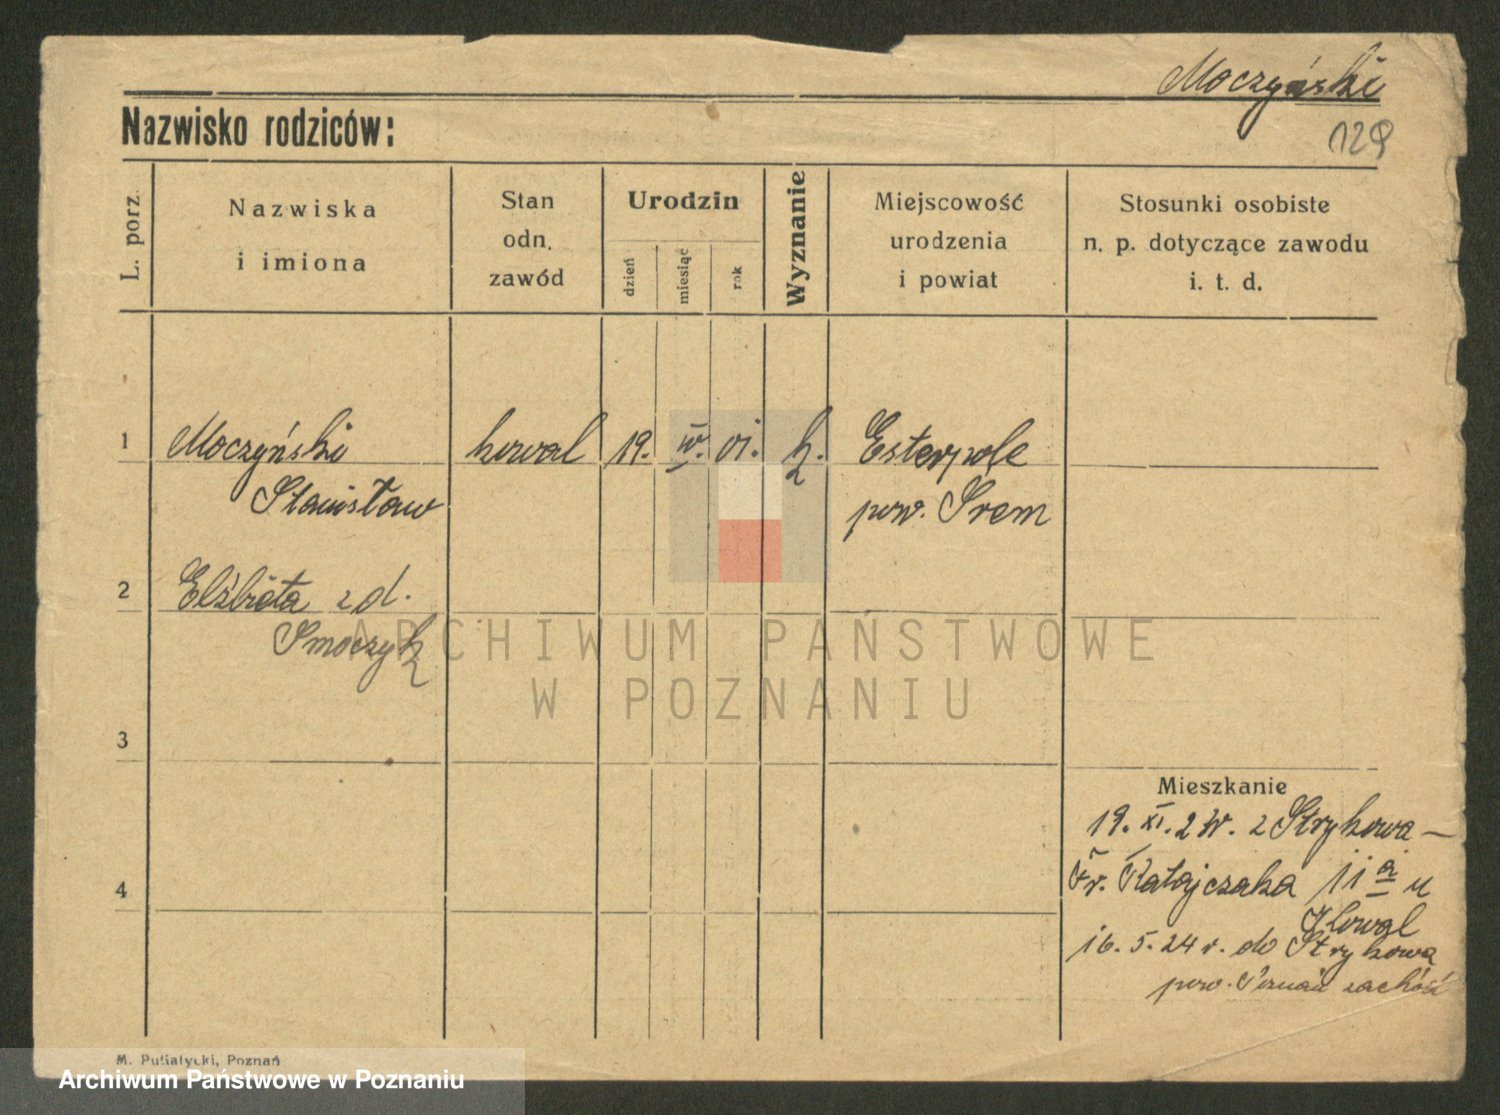 Moczyński
129
Nazwisko rodziców:
L. porz.
Nazwiska
i imiona
Stan
odn.
zawód
Urodzin
dzień
miesiąc
rok
Wyznanie
Miejscowość
urodzenia
i powiat
Stosunki osobiste
n. p. dotyczące zawodu
i. t. d.
1
Moczyński
Stanisław
kowal
19.
IV.
01.
k.
Esterpole
pow. Srem
2
Elżbieta z d.
Smoczyk
ARCHIWUM PAŃSTWOWE
W POZNANIU
3
4
Mieszkanie
19. XI. z Strykowa –
Fr. Ratajczaka 11 a u
Kowal
16. 5. 24 r. do Strykowa
pow. Poznań zachód
M. Putiatycki, Poznań
Archiwum Państwowe w Poznaniu